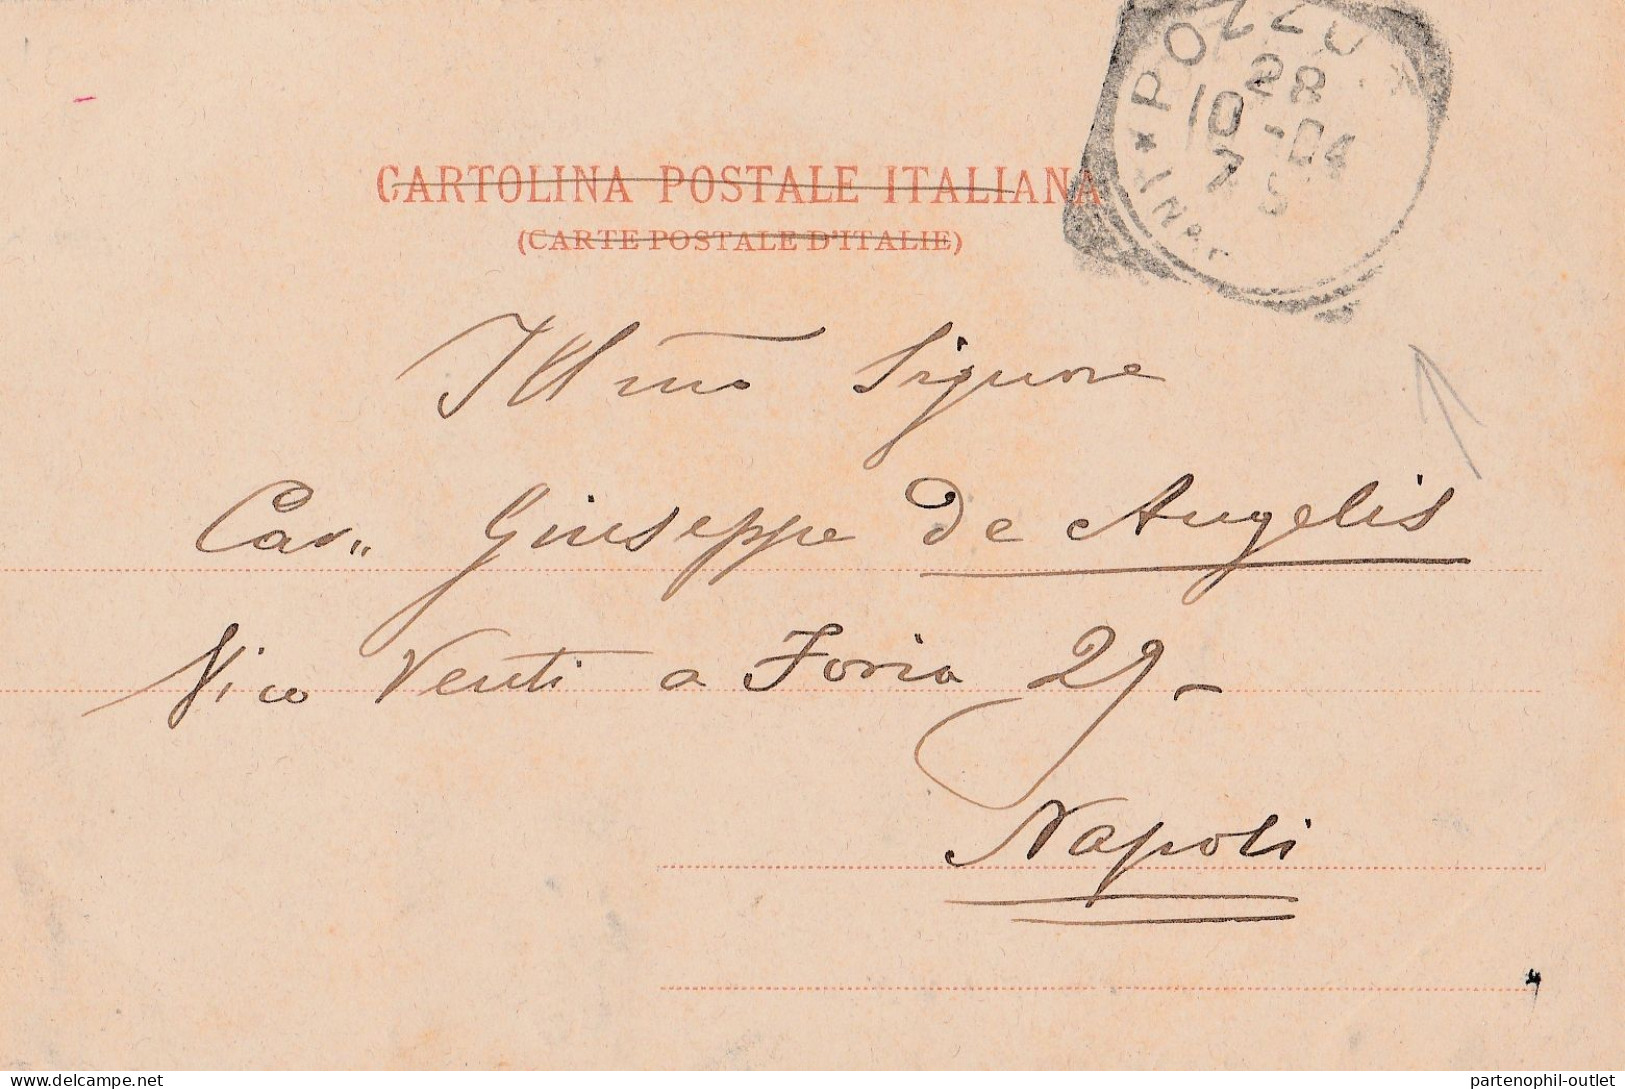 POZZUO
28
10 -04
7 S
* (NAP
CARTOLINA POSTALE ITALIANA
(CARTE POSTALE D'ITALIE)
Ill mo Signore
Cav.. Giuseppe De Angelis
Vico Venti a Foria 29-
Napoli
delcampe.net
partenophil-outlet